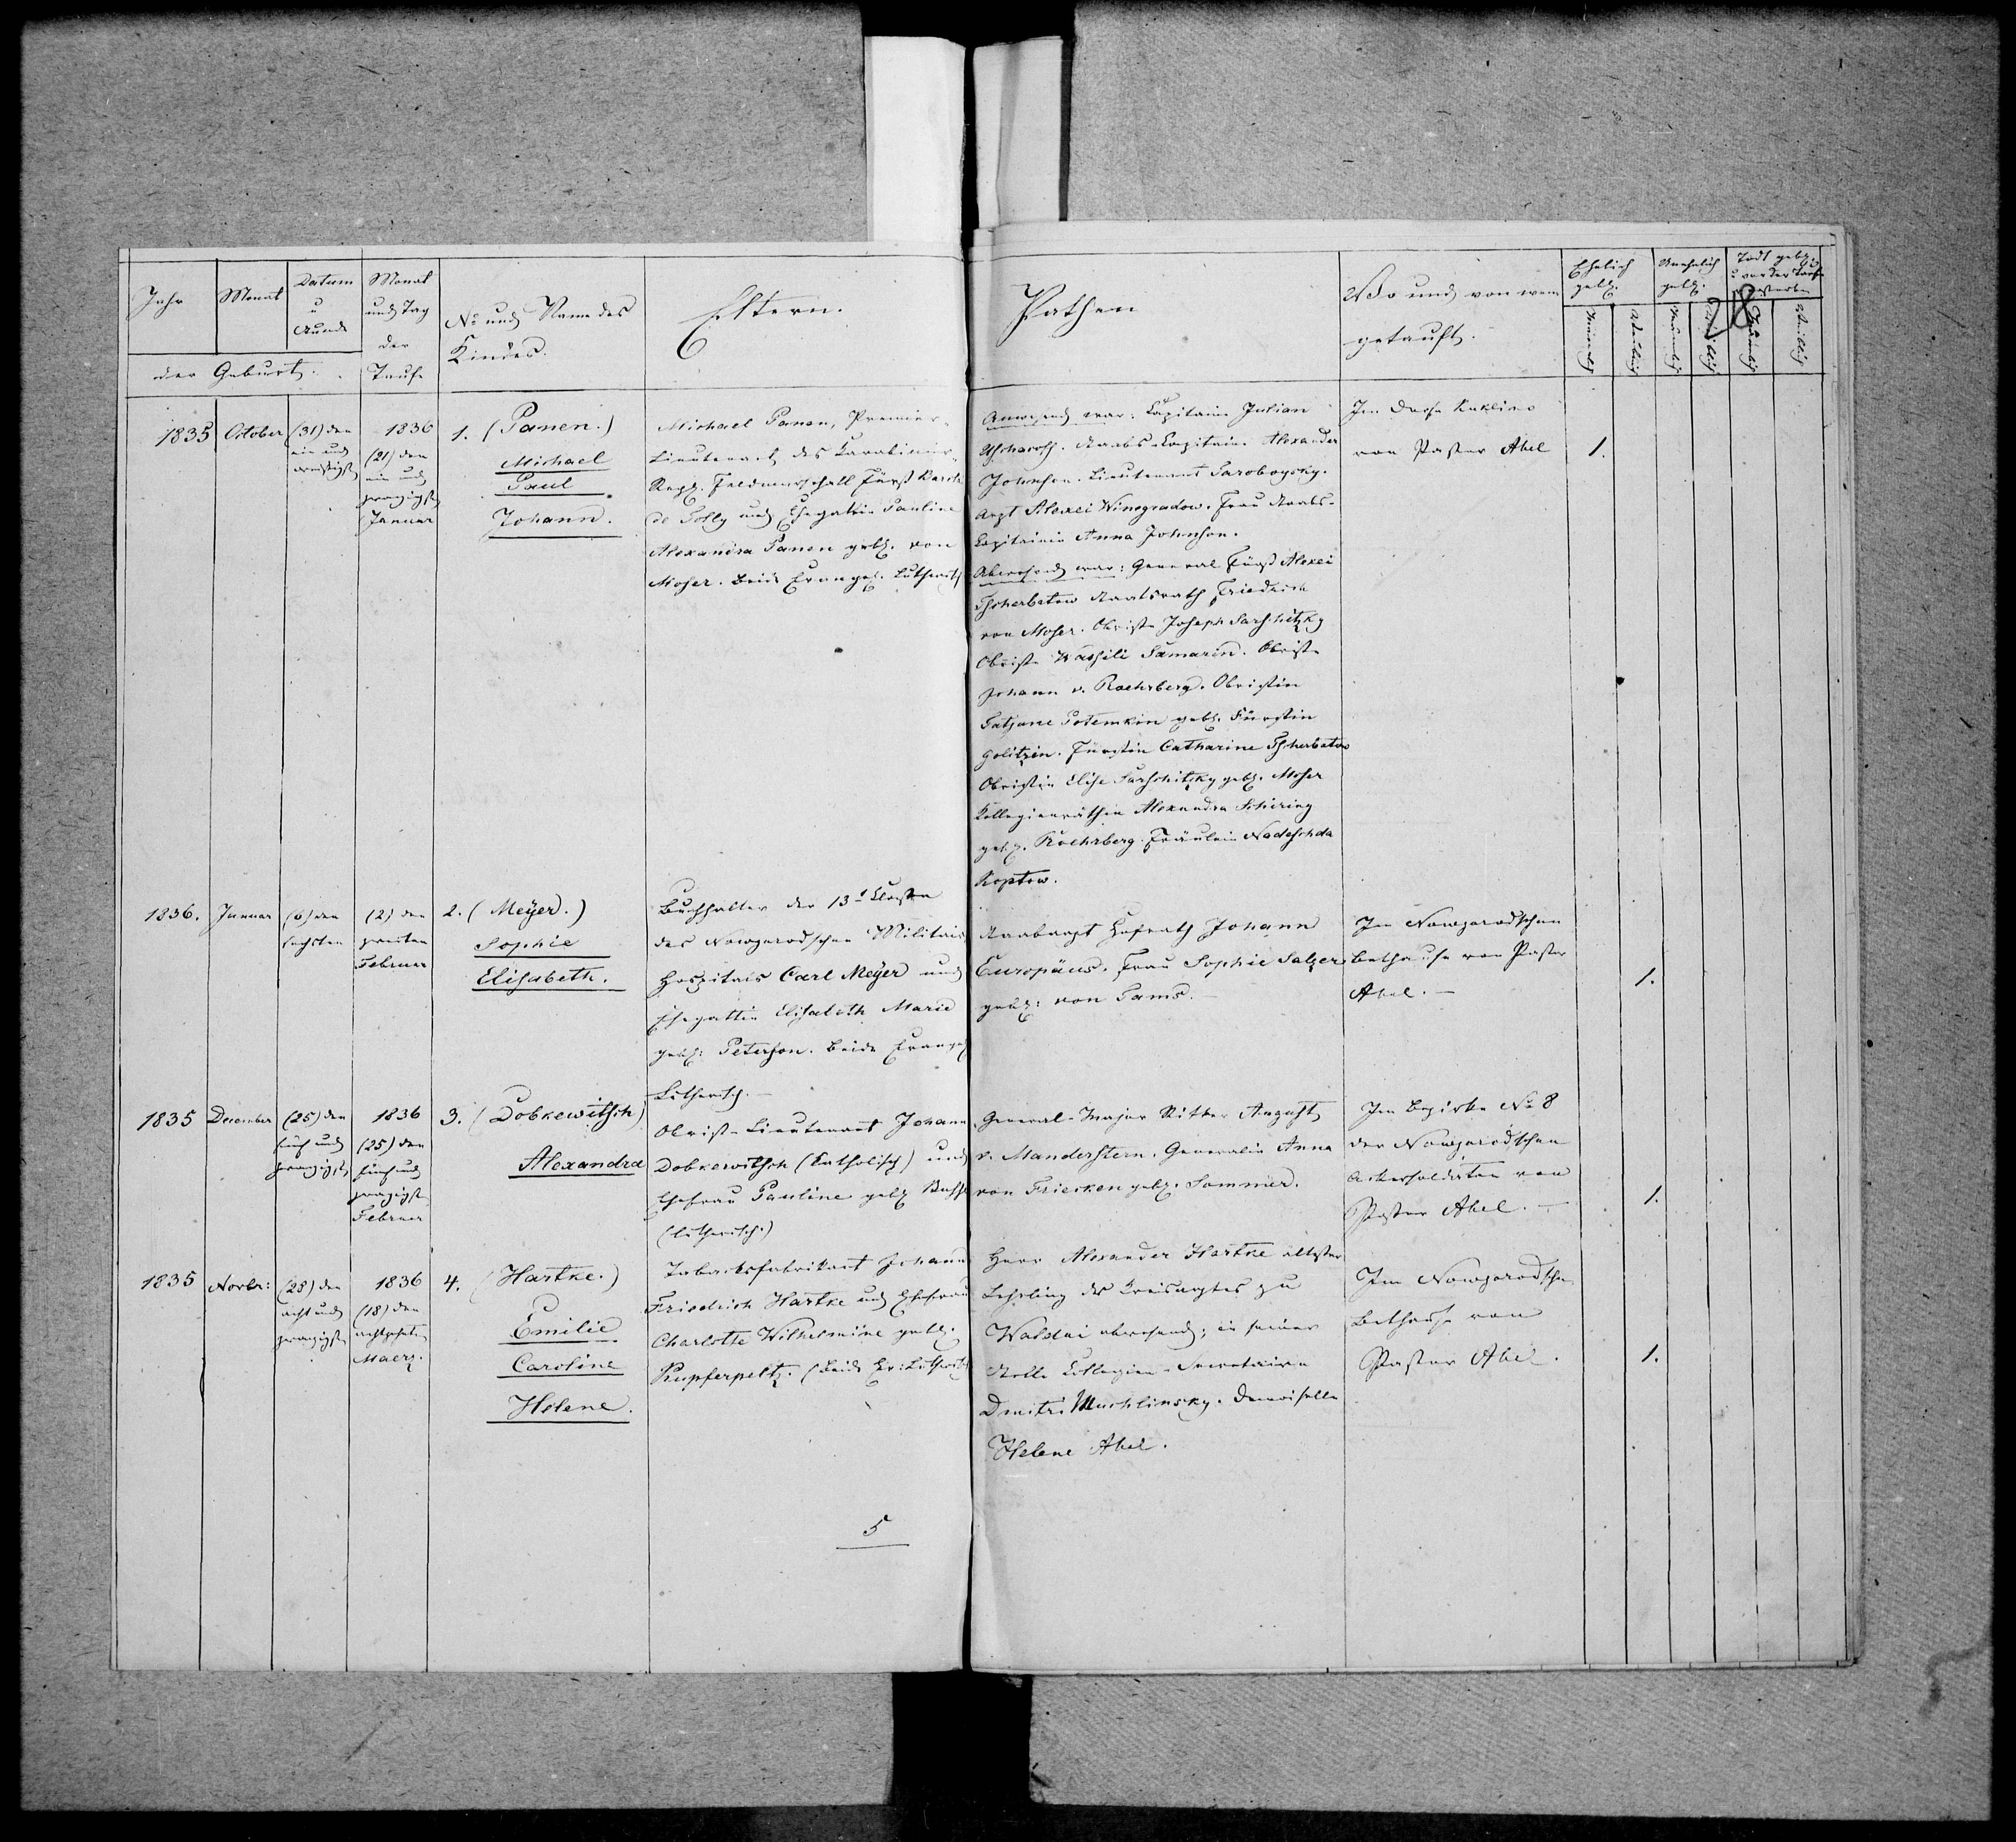 Jahr
Monat
Datum
u
Stunde
der Geburt.
Monat
und Tag
der
Taufe
No und Name des
Kindes.
Eltern.
Pathen
Wo und von wem
getauft.
Ehelich
geb.
Unehelich
geb.
Todt geb.
u vor der Taufe
verstorben
Männlich
Weiblich
Männlich
Weiblich
Männlich
Weiblich
28
1835
October
(31) den
ein und
dreißigst
1836
(21) den
ein und
zwanzigst
Januar
1. (Panen.)
Michael
Paul
Johann.
Michael Panen, Premier-
Lieutenant des Karabinier-
Regt. Feldmarschall Fürst Barclai
de Tolly und Ehegattin Pauline
Alexandra Panen geb. von
Moser. Beide Evangel. Lutherisch
Anwesend war: Kapitain Julian
Staabs-Kapitain Alexander
Johnson. Lieutenant
Arzt Alexei Winogradow. Frau Staabs-
Kapitainin Anna Johnson.
Abwesend war: General Fürst Alexei
Tscherbatow Staatsrath Friedrich
von Moser. Obrist Joseph Sarschitzky
Obrist Wassili Samarin. Obrist
Johann v. Roehrberg. Obristin
Tatjane Potemkin geb. Fürstin
Golitzin. Fürstin Catharine Tscherbatow
Obristin Elise Sarschitzky geb. Moser
Kollegienräthin Alexandra Schiring
geb. Roehrberg. Fräulein Nadeschda
Koptow.
Im Dorfe
von Pastor Abel
1.
1836.
Januar
(6) den
sechsten
(2) den
zweiten
Februar
2. (Meyer.)
Sophie
Elisabeth.
Buchhalter der 13t Classe
des Nowgorodschen Militair
Hospitals Carl Meyer und
Ehegattin Elisabeth Marie
geb: Peterson. Beide Evangel
Lutherisch.
Staabarzt Hofrath Johann
Europäus. Frau Sophie Salzer
geb: von Sams.
Im Nowgorodschen
Bethause von Pastor
Abel.
1.
1835
December
(25) den
fünf und
zwanzigst
1836
(25) den
fünf und
zwanzigst
Februar
3. (Dobkewitsch)
Alexandra
Obrist-Lieutenant Johann
Dobkewitsch (katholisch) und
Ehefrau Pauline geb. Busse
(lutherisch.)
General-Major Ritter August
v. Manderstern. Generalin Anna
von Friecken geb. Sommer.
Im Bezirke No 8
der Nowgorodschen
Ackersoldaten von
Pastor Abel.
1.
1835
Novbr:
(28) den
acht und
zwanzigst
1836
(18) den
achtzehnten
Maerz.
4. (Hartke.)
Emilie
Caroline
Helene.
Tabacksfabrikant Johann
Friedrich Hartke und Ehefrau
Charlotte Wilhelmine geb.
Kupferpeltz. (Beide Ev: Lutherisch
Herr Alexander Hartke ältester
Lehrling des Kreisarztes zu
Waldai abwesend; in seiner
Stelle Kollegien-Secretaire
Dmitri Muchlinsky. Demoiselle
Helene Abel.
Im Nowgorodschen
Bethause von
Pastor Abel.
1.
5